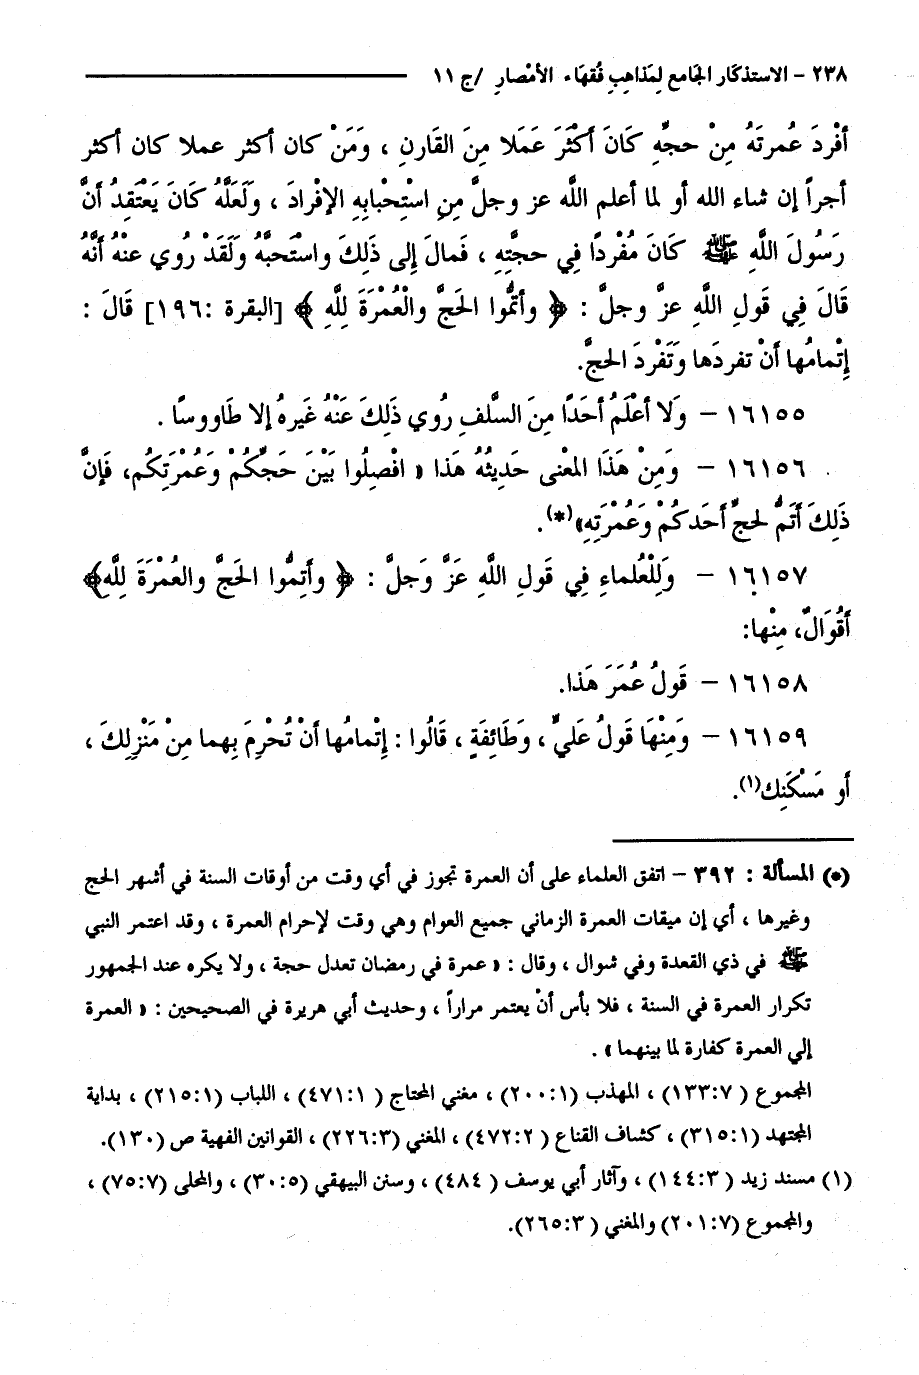 ٢٣٨ - الاستذكار الجامع لِمَذاهِبِ فُقهَاء الأمْصارِ /ج ١١
أفْردَ عُمرتَهُ مِنْ حجِّهِ كَانَ أكْثَرَ عَمَلا مِنَ القَارنِ ، وَمَنْ كان أكثر عملا كان أكثر
أجراً إن شاء الله أو لما أعلم اللَّه عز وجلَّ مِنِ اسْتِحْبابِهِ الإفْرادَ ، وَلَعَلَّهُ كَانَ يَعْتَقِدُ أنَّ
رَسُولَ اللَّهِ ﷺ كَانَ مُفْردًا فِي حجتِهِ ، فَمالَ إلى ذَلِكَ واستَحبَّهُ وَلَقَدْ رُوي عنْهُ أنَّهُ
قَالَ فِي قَولِ اللَّهِ عزَّ وجلَّ : ﴿ وأتمُّوا الحَجَّ والْعُمْرَةَ لِلَّهِ ﴾ [البقرة :١٩٦] قَالَ :
إتْمامُها أنْ تفردَها وَتَفْردَ الحجَّ.
١٦١٥٥ - وَلا أعْلَمُ أحَدًا مِنَ السَّلفِ رُوي ذَلِكَ عَنْهُ غَيرهُ إلا طَاووسًا .
١٦١٥٦ - وَمِنْ هَذَا المْعْنى حَدِيثُهُ هَذا « افْصِلُوا بَيْنَ حَجِّكُمْ وَعُمْرَتِكُم، فَإنَّ
ذَلِكَ أتَمُّ لحجِّ أحَدكُمْ وَعُمْرَتِهِ»(*).
١٦١٥٧ - وَلِلْعُلماءِ فِي قَولِ اللَّهِ عَزَّ وَجلَّ : ﴿ وأتِمُّوا الحَجَّ والعُمْرَةَ لِلَّهِ﴾
أقُوَالٌ، مِنْها:
١٦١٥٨ - قَولُ عُمَرَ هَذا.
١٦١٥٩ - وَمِنْهَا قَولُ عَلَيٍّ ، وَطَائِفَةٍ ، قَالُوا : إتْمامُها أنْ تُحْرِمَ بِهما مِنْ مَنْزِلِكَ ،
أو مَسْكَنِك(١).
(*) المسألة : ٣٩٢ - اتفق العلماء على أن العمرة تجوز في أي وقت من أوقات السنة في أشهر الحج
وغيرها ، أي إن ميقات العمرة الزماني جميع العوام وهي وقت لإحرام العمرة ، وقد اعتمر النبي
ﷺ في ذي القعدة وفي شوال ، وقال : « عمرة في رمضان تعدل حجة ، ولا يكره عند الجمهور
تكرار العمرة في السنة ، فلا بأس أنْ يعتمر مراراً ، وحديث أبي هريرة في الصحيحين : « العمرة
إلي العمرة كفارة لما بينهما » .
المجموع ( ١٣٣:٧) ، المهذب (٢٠٠:١) ، مغني المحتاج ( ٤٧١:١) ، اللباب (٢١٥:١) ، بداية
المجتهد (٣١٥:١) ، كشاف القناع ( ٤٧٢:٢) ، المغني (٢٢٦:٣) ، القوانين الفهية ص (١٣٠).
(١) مسند زيد ( ١٤٤:٣) ، وآثار أبي يوسف ( ٤٨٤) ، وسنن البيهقي (٣٠:٥) ، والمحلى (٧٥:٧) ،
والمجموع (٢٠١:٧) والمغني ( ٢٦٥:٣).